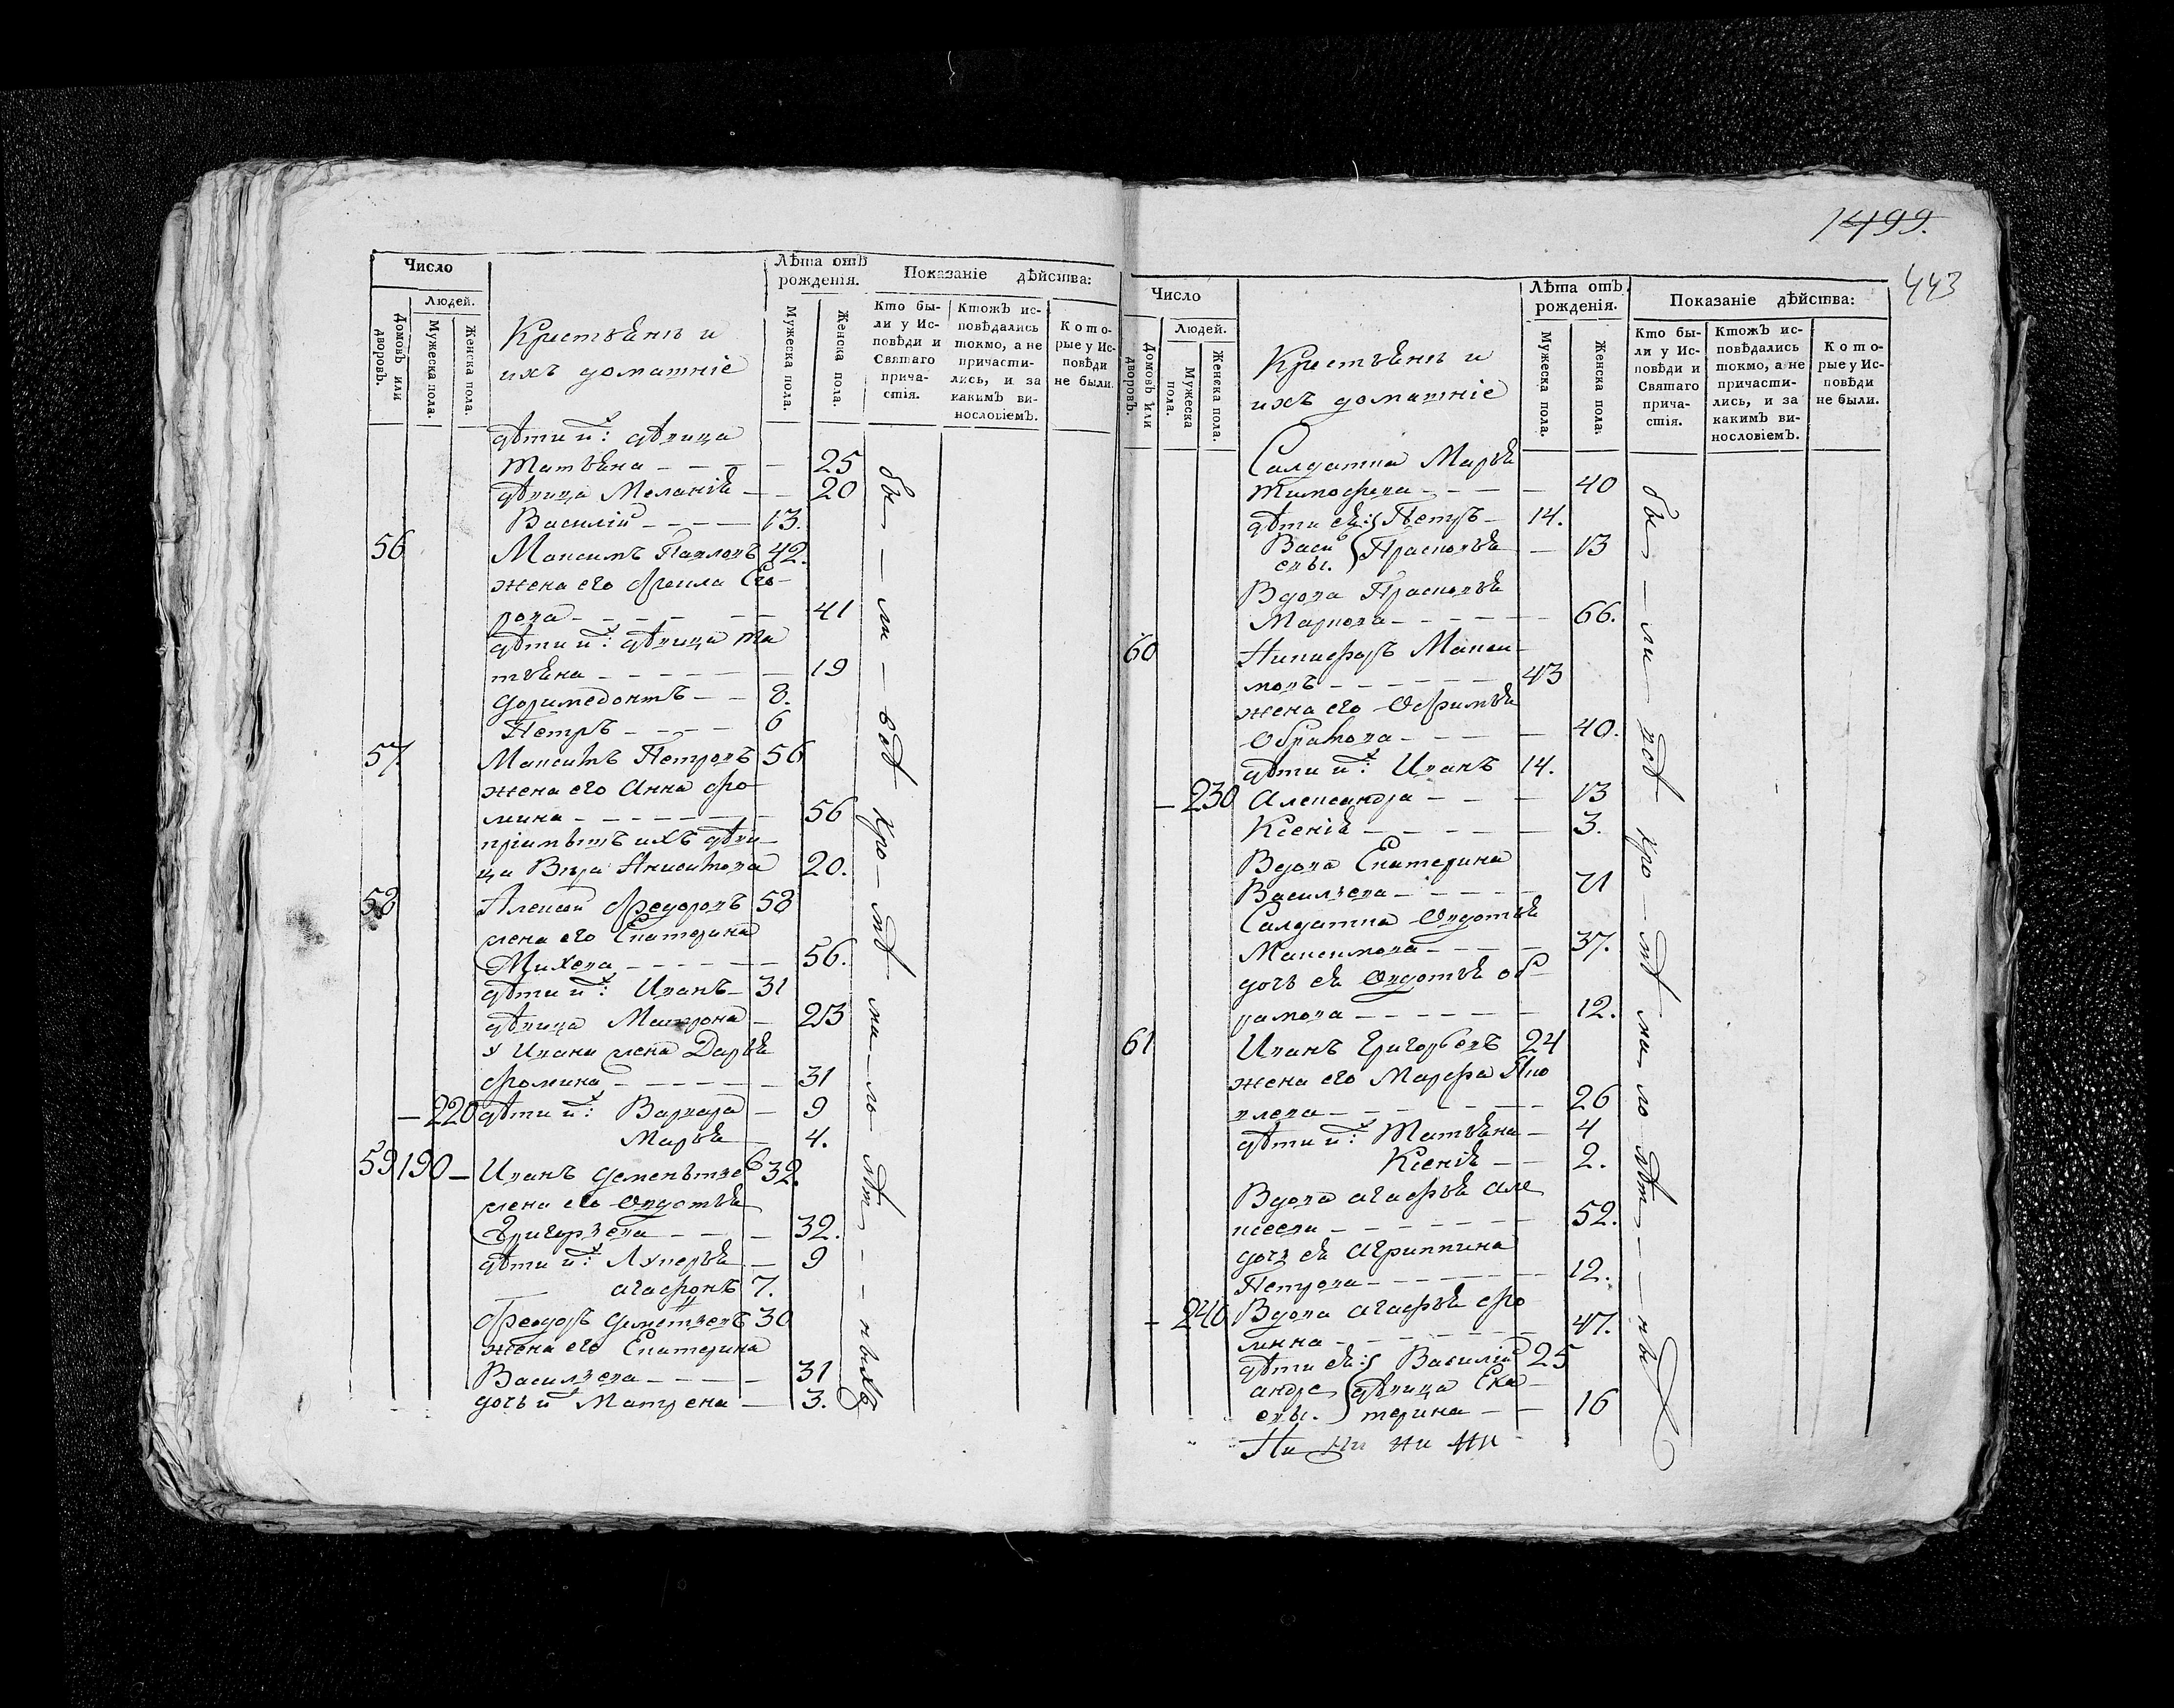 1499.
443
Число
Людей.
Домовъ или дворовъ.
Мужеска пола.
Женска пола.
Крестьянъ и
ихъ домашніе
Лѣта отъ
рожденія.
Мужеска пола.
Женска пола.
Показаніе дѣйства:
Кто бы-
ли у Ис-
повѣди и
Святаго
прича-
стія.
Ктожъ ис-
повѣдались
токмо, а не
причасти-
лись, и за
какимъ ви-
нословіемъ.
Кото-
рые у Ис-
повѣди
не были.
дѣти их: дѣвица
татьяна 25
дѣвица Меланія 20
Василій 13.
56 Максимъ Павловъ 42.
жена его Фекла Его-
рова 41
дѣти их: дѣвица та
тьяна 19
доримедонтъ 8.
Петръ 6
57. Максимъ Петровъ 56
жена его Анна Фо
мина 56
пріимышъ ихъ дѣви-
ца Вера Анисимова 20.
58 Алексій Федоровъ 58
жена его Екатерина
Михева 56.
дѣти их: Иванъ 31
дѣвица Матрона 23
у Ивана жена Дарья
фомина 31
220 дѣти их: Варвара 9
Марья 4.
59 190 Иванъ дементье 32.
жена его Овдотья
Григорьева 32.
дѣти их: Лукерья 9
агафонъ 7.
Феодоръ деметьевъ 30
жена его Екатерина
Васильева 31
дочь их Матрена 3.
бы ли все кро ме ма ло лѣт ныхъ
Число
Людей.
Домовъ или дворовъ.
Мужеска пола.
Женска пола.
Крестьянъ и
ихъ домашніе
Лѣта отъ
рожденія.
Мужеска пола.
Женска пола.
Показаніе дѣйства:
Кто бы-
ли у Ис-
повѣди и
Святаго
прича-
стія.
Ктожъ ис-
повѣдались
токмо, а не
причасти-
лись, и за
какимъ ви-
нословіемъ.
Кото-
рые у Ис-
повѣди
не были.
Салдатка Марья
тимофева 40
дѣти ея: Петръ 14.
Васи Прасковья 13
евы.
Вдова Прасковья
Маркова 66.
60 Никифоръ Макси-
мовъ 43
жена его Офимья
Обрамова 40.
дѣти их: Иванъ 14.
230 Александра 13
Ксенія 3.
Вдова Екатерина
Васильева 71
Салдатка Овдотья
Максимова 37.
дочь ея Овдотья об
рамова 12.
61 Иванъ Григорьевъ 24
жена его Марфа Яко
влева 26
дѣти их: Татьяна 4
Ксенія 2.
Вдова агафья але
ксеева 52.
дочь ея агриппина
Петрова 12.
240 Вдова агафья фо
мина 47.
дѣти ея: Василій 25
андре дѣвица Ека-
евы. терина 16
бы ли все кро ме ма ло лѣт ны